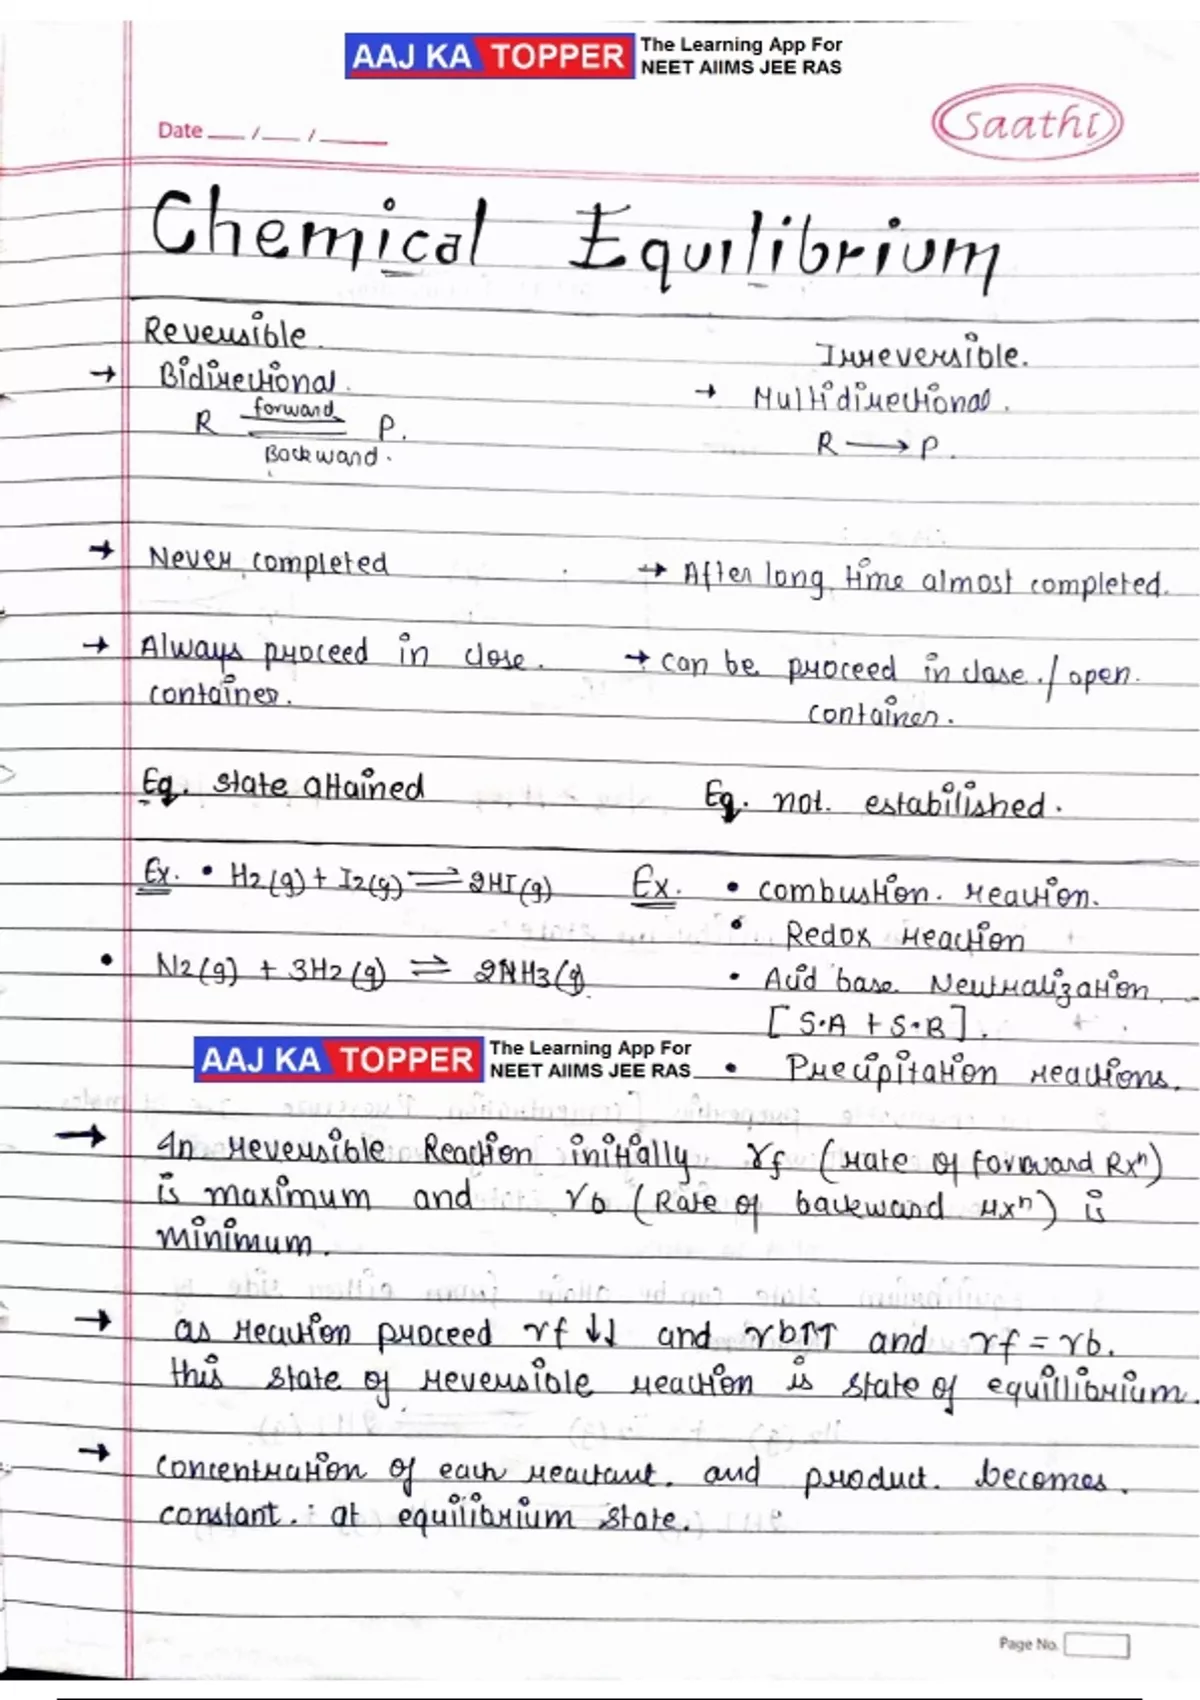 AAJ KA TOPPER The Learning App For
NEET AIIMS JEE RAS
Date __/__/____
Saathi
Chemical Equilibrium
Reversible.
Irreversible.
→ Bidirectional.
→ Multidirectional.
R forward P.
Backward.
R → P.
→ Never completed
→ After long time almost completed.
→ Always proceed in close.
container.
→ can be proceed in close./open.
container.
Eq. state attained
Eq. not. estabilished.
Ex. • H2(g) + I2(g) ⇌ 2HI(g)
Ex. • combustion. reaction.
• Redox reaction
• N2(g) + 3H2(g) ⇌ 2NH3(g).
• Acid base Neutralization.
[S.A + S.B].
AAJ KA TOPPER The Learning App For
NEET AIIMS JEE RAS
• Precipitation reactions.
→ In reversible Reaction initially rf (rate of forward Rxⁿ)
is maximum and rb (Rate of backward rxⁿ) is
minimum.
→ as reaction proceed rf ↓↓ and rb↑↑ and rf = rb.
this state of reversible reaction is state of equillibrium.
→ concentration of each reactant. and product. becomes.
constant. : at equilibrium state.
Page No.